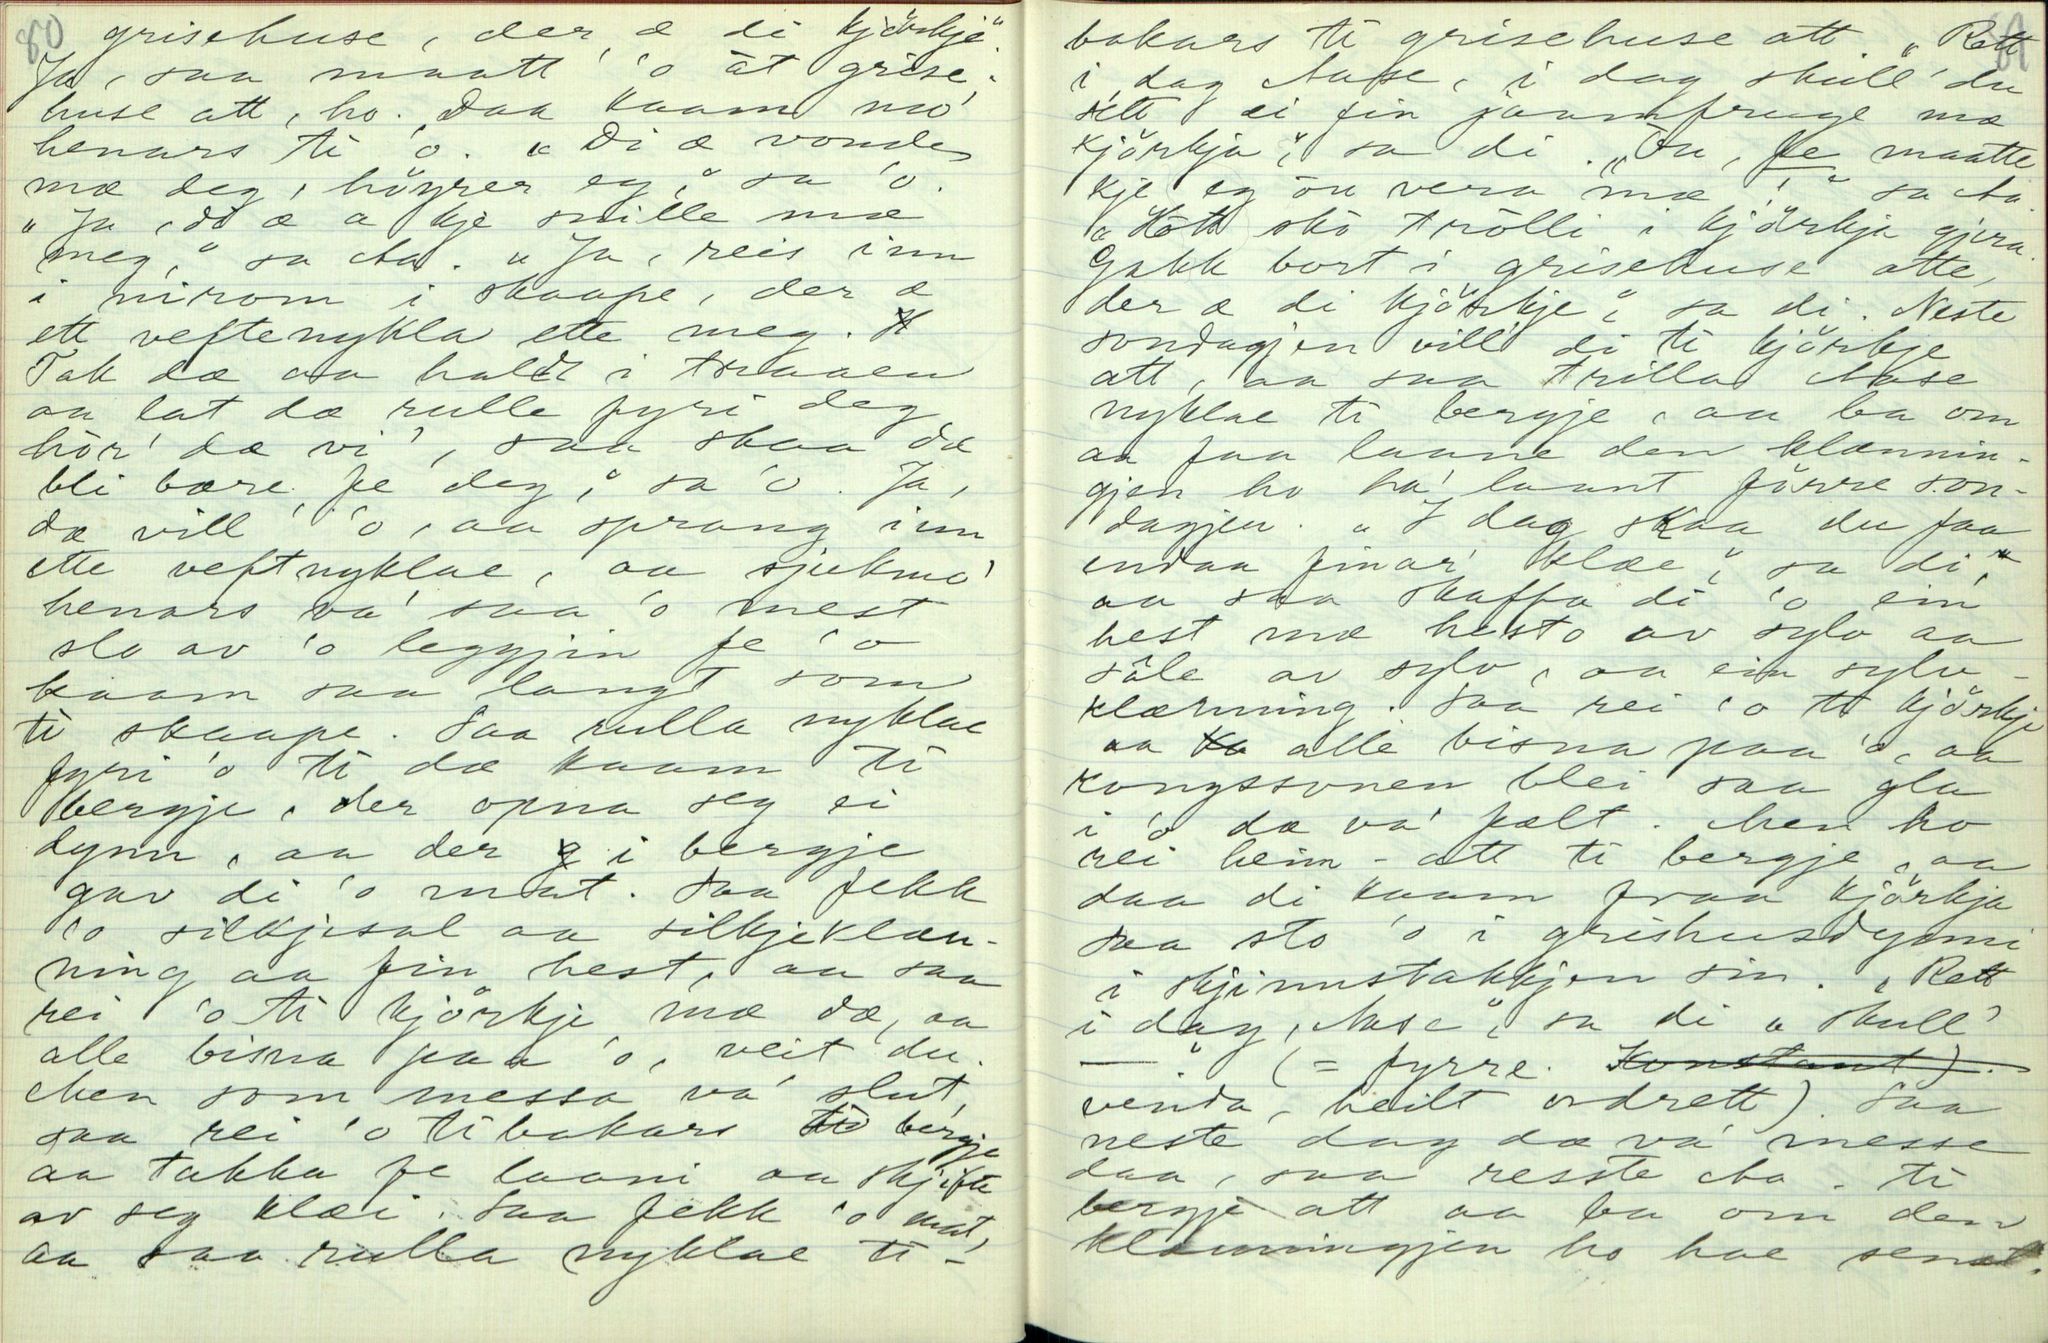 80
grisehuse, der æ di kjörkje."
Ja, saa maatt' 'o åt grise-
huse att, ho. Daa kaam mo'
henars ti 'o. "Di æ vonde
mæ deg, höyrer eg," sa 'o.
"Ja, di æ a kje snille mæ
meg," sa Aa. "Ja, reis inn
i mirom i skaape, der æ
ett veftenykla ette meg.
Tak dæ aa hald i traaen
aa lat dæ rulle fyri deg
hör' dæ vi', saa skaa dæ
bli bære fe deg," sa 'o. Ja,
dæ vill' 'o, aa sprang inn
ette veftnyklae, aa sjukmo'
henars va' saa 'o mest
slo av 'o leggjin fe 'o
kaam saa langt som
ti skaape. Saa rulla nyklae
fyri 'o ti dæ kaam ti
bergje, der opna seg ei
dynn, aa der i bergje
gav di 'o mat. Saa fekk
'o silkjesal aa silkjeklæn-
ning aa fin hest, aa saa
rei 'o ti kjörkje mæ dæ, aa
alle bisna paa 'o, veit du.
Men som messa va' slut,
saa rei 'o tibakars ti bergje
aa takka fe laani aa skjifte
av seg klæi. Saa fekk 'o mat,
aa saa rulla nyklae ti-
81
bakars ti grisehuse att. "Rett
i dag Aase, i dag skull' du
sett ei fin jaamfruge mæ
kjörkja", sa di. "Öu, fe maatte
kje eg öu vera mæ!" sa Aa.
"Kött sko trölli i kjörkja gjera.
Gakk bort i grisehuse atte,
der æ di kjörkje", sa di. Neste
sondagjen vill' di ti kjörkje
att, aa saa trilla Aase
nyklae ti bergje, aa ba om
aa faa laane den klænnin-
gjen ho ha' laant förre son-
dagjen. "I dag skaa du faa
endaa finar' klæe", sa di,"
aa saa skaffa di 'o ein
hest mæ hesto av sylv aa
såle av sylv, aa ein sylv-
klænning. Saa rei 'o ti kjörkje
aa alle bisna paa 'o, aa
kongssonen blei saa gla
i 'o dæ va' fælt. Men ho
rei heim-att ti bergje, aa
daa di kaam fraa kjörkja
saa sto 'o i grishusdynni
i skjinnstakkjen sin. "Rett
i dag, Aase", sa di "skull'
—" (= fyrre. Konstant).
venda, heilt ordrett). Saa
neste dag dæ va' messe
daa, saa resste Aa. ti
bergje att aa ba om den
klænningjen ho hae senst.